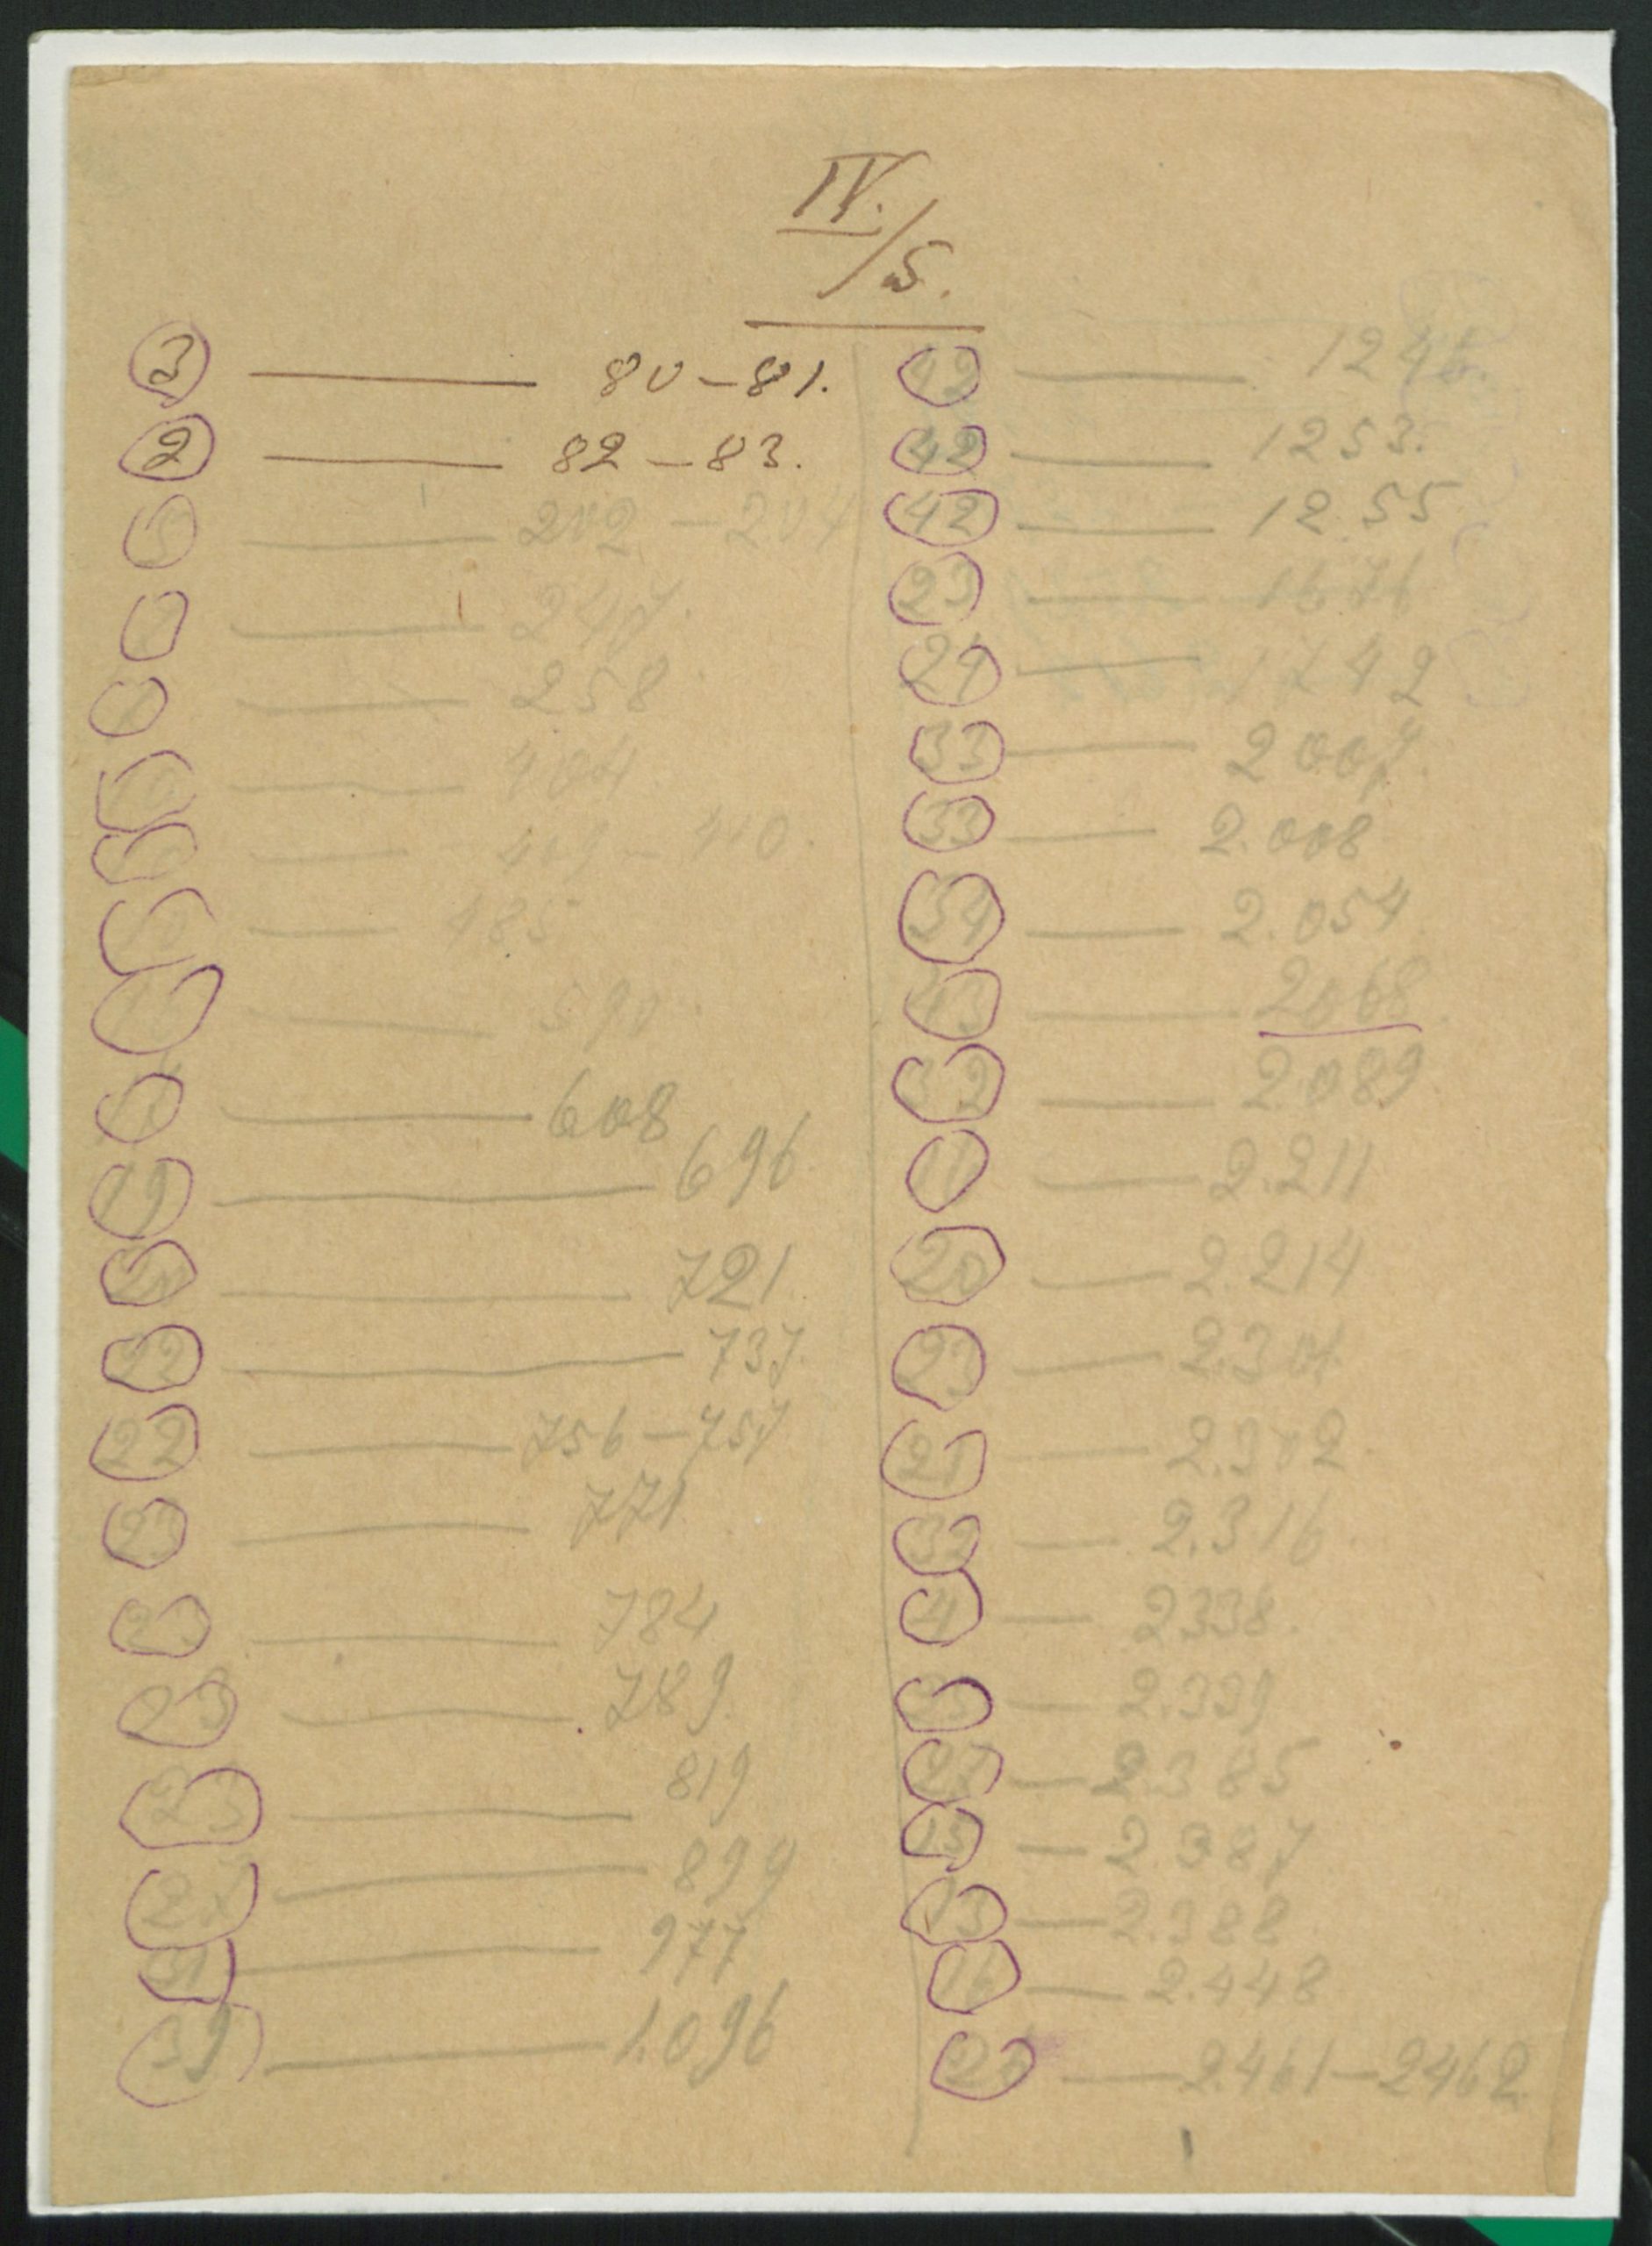 IV./5.
3 — 80-81.
2 — 82-83.
5 — 202-204
247.
258.
404
409-410.
485
590.
608
19 — 696.
721.
22 — 737.
22 — 756-757
771
23 — 784
23 — 789.
23 — 819
27 — 899
31 — 977
39 — 1.096
42 — 1246.
42 — 1253.
42 — 1255
23 — 1676
24 — 1742
33 — 2007.
33 — 2.008
34 — 2.054.
43 — 2068.
32 — 2.089
11 — 2.211
20 — 2.214
23 — 2.301.
21 — 2.302.
32 — 2.316.
4 — 2338.
23 — 2.339
27 — 2.385
13 — 2.387
13 — 2.388
16 — 2.448
2.461-2462